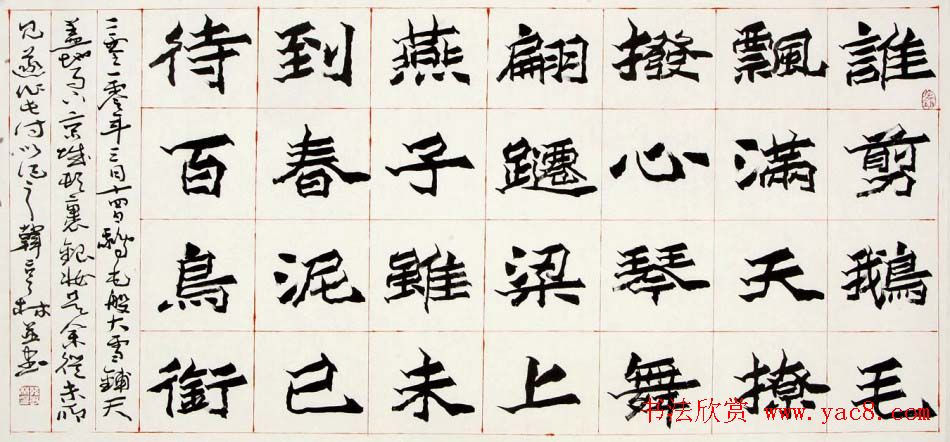 誰剪鵝毛
飄滿天撩
撥心琴舞
翩躚梁上
燕子雖未
到春泥已
待百鳥銜
二零一零年三月十四日鵝毛般大雪鋪天
蓋地而下京城頓裹銀妝是余從未所
見遂作此詩以記之韓亨林並書
书法欣赏 www.yac8.com